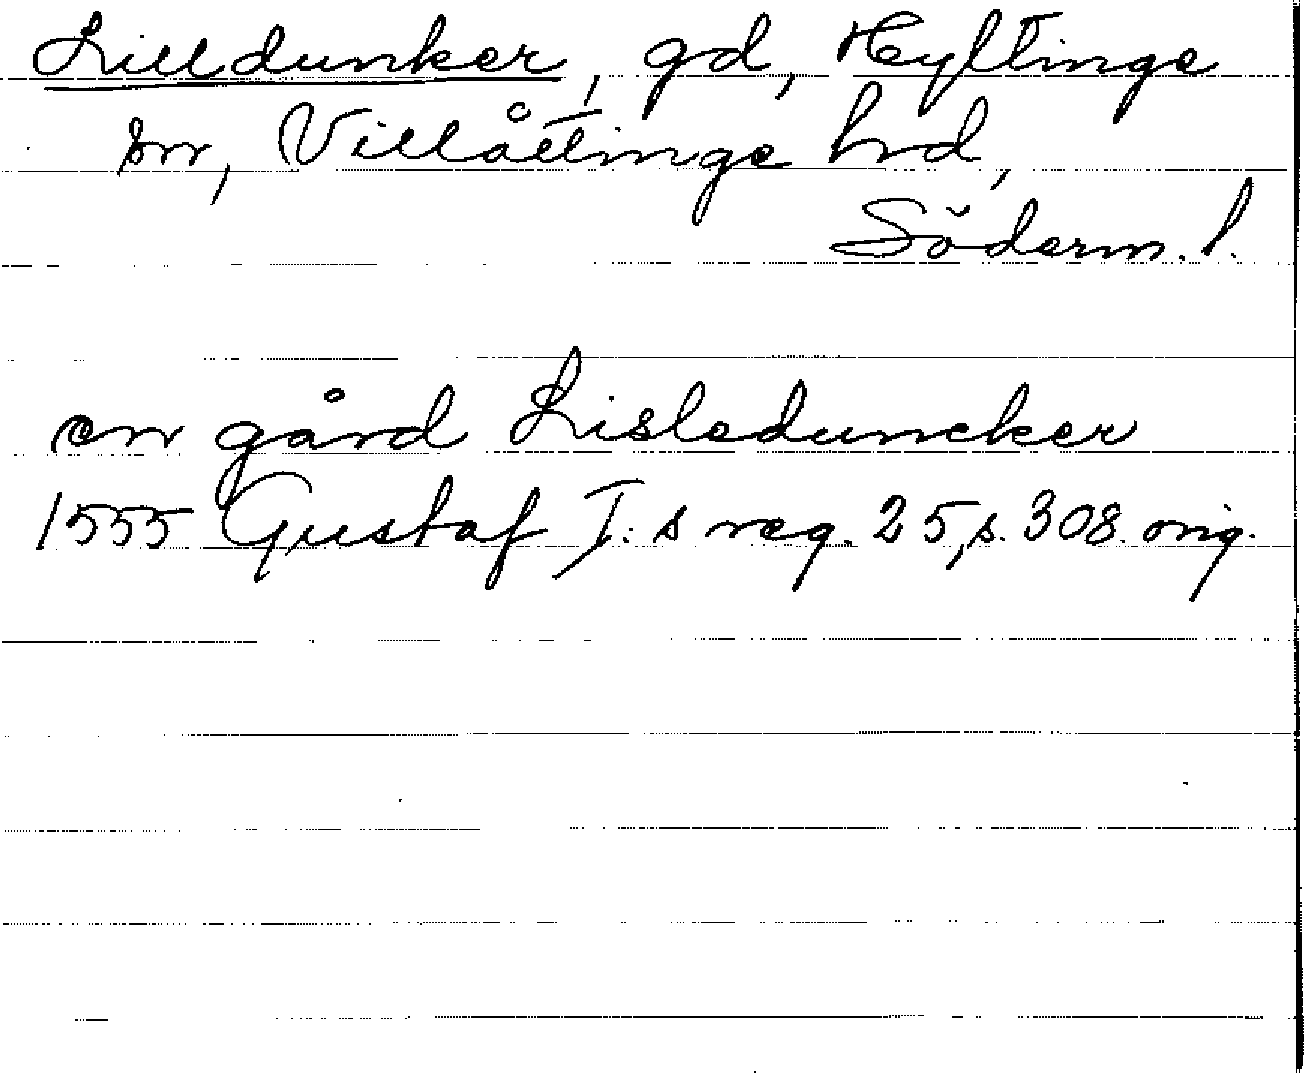 Lilldunker, gd, Hyltinge
sn, Villåttinge hd,
Söderm. l.
en gård Lisleduncker
1555 Gustaf I:s reg. 25, s. 308. orig.